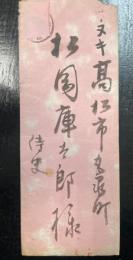 サヌキ高松市丸亀町
松岡庫太郎様
侍史